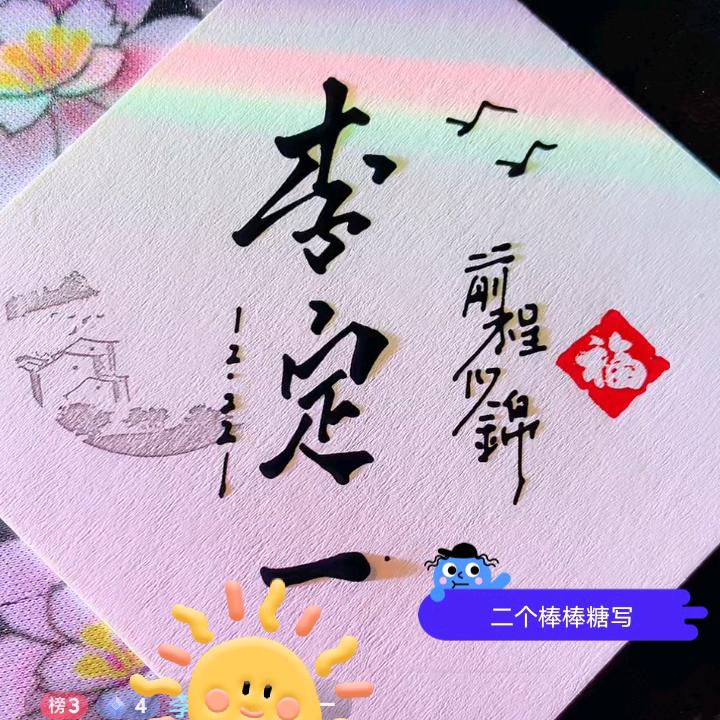 李定一
前程似錦
福
二个棒棒糖写
榜3
4